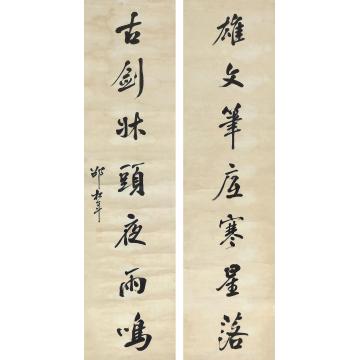 雄文筆底寒星落
古劍牀頭夜雨鳴
邵松年